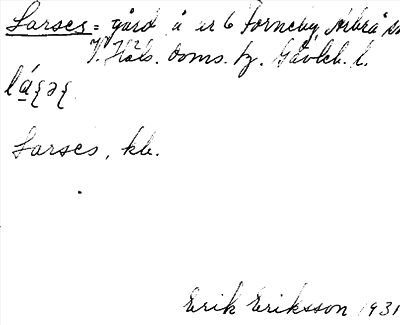 Larses = gård å nr 6 Forneby, Arbrå sn
V. Häls. doms. tg. Gävleb. l.
Larses, kb.
Erik Eriksson 1931